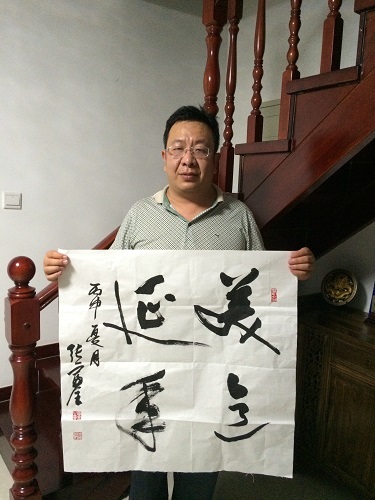 美意
延年
丙申夏月
张